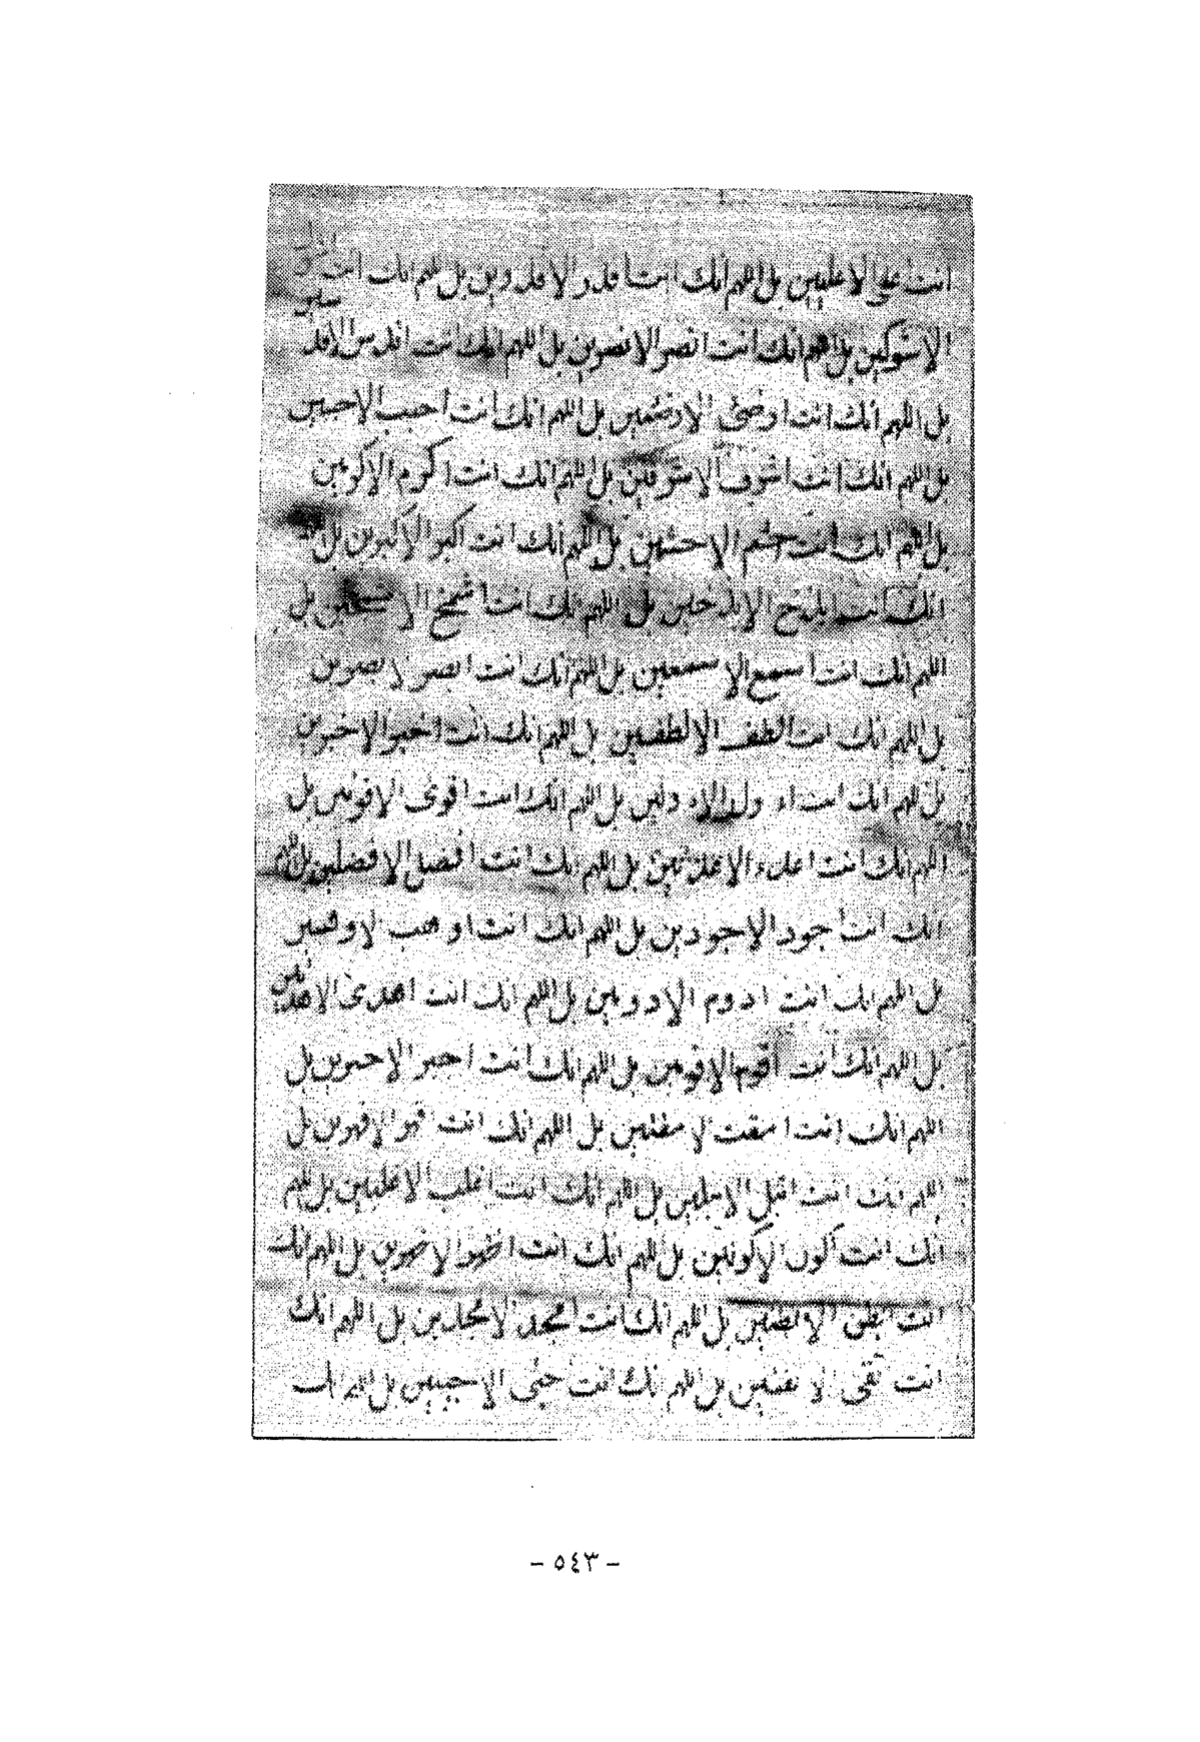 انت اعلى الاعليين بل اللهم انك انت اقدر الاقدرين بل اللهم انك انت
بل اللهم انك انت انصر الانصرين بل اللهم انك انت اقدس
بل اللهم انك انت ارضى الارضيين بل اللهم انك انت احبب الاحببين
بل اللهم انك انت اشرف الاشرفين بل اللهم انك انت اكرم الاكرمين
بل اللهم انك انت احشم الاحشمين بل اللهم انك انت اكبر الاكبرين بل
انك انت ابذخ الابذخين بل اللهم انك انت اشمخ الاشمخين بل
اللهم انك انت اسمع الاسمعين بل اللهم انك انت ابصر الابصرين
بل اللهم انك انت الطف الالطفين بل اللهم انك انت اخبر الاخبرين
بل اللهم انك انت بل اللهم انك انت اقوى الاقويين بل
اللهم انك انت بل اللهم انك انت افضل الافضلين بل اللهم
انك انت اجود الاجودين بل اللهم انك انت اوهب الاوهبين
بل اللهم انك انت ادوم الادومين بل اللهم انك انت اهدى الاهديين
بل اللهم انك انت اقوم الاقومين بل اللهم انك انت بل
اللهم انك انت بل اللهم انك انت اقهر الاقهرين بل
اللهم انك انت بل اللهم انك انت اغلب الاغلبين بل اللهم
انك انت اكون الاكونين بل اللهم انك انت اظهر الاظهرين بل اللهم انك
انت ابطن الابطنين بل اللهم انك انت امجد الامجدين بل اللهم انك
انت بل اللهم انك انت بل اللهم انك
- ٥٤٣ -